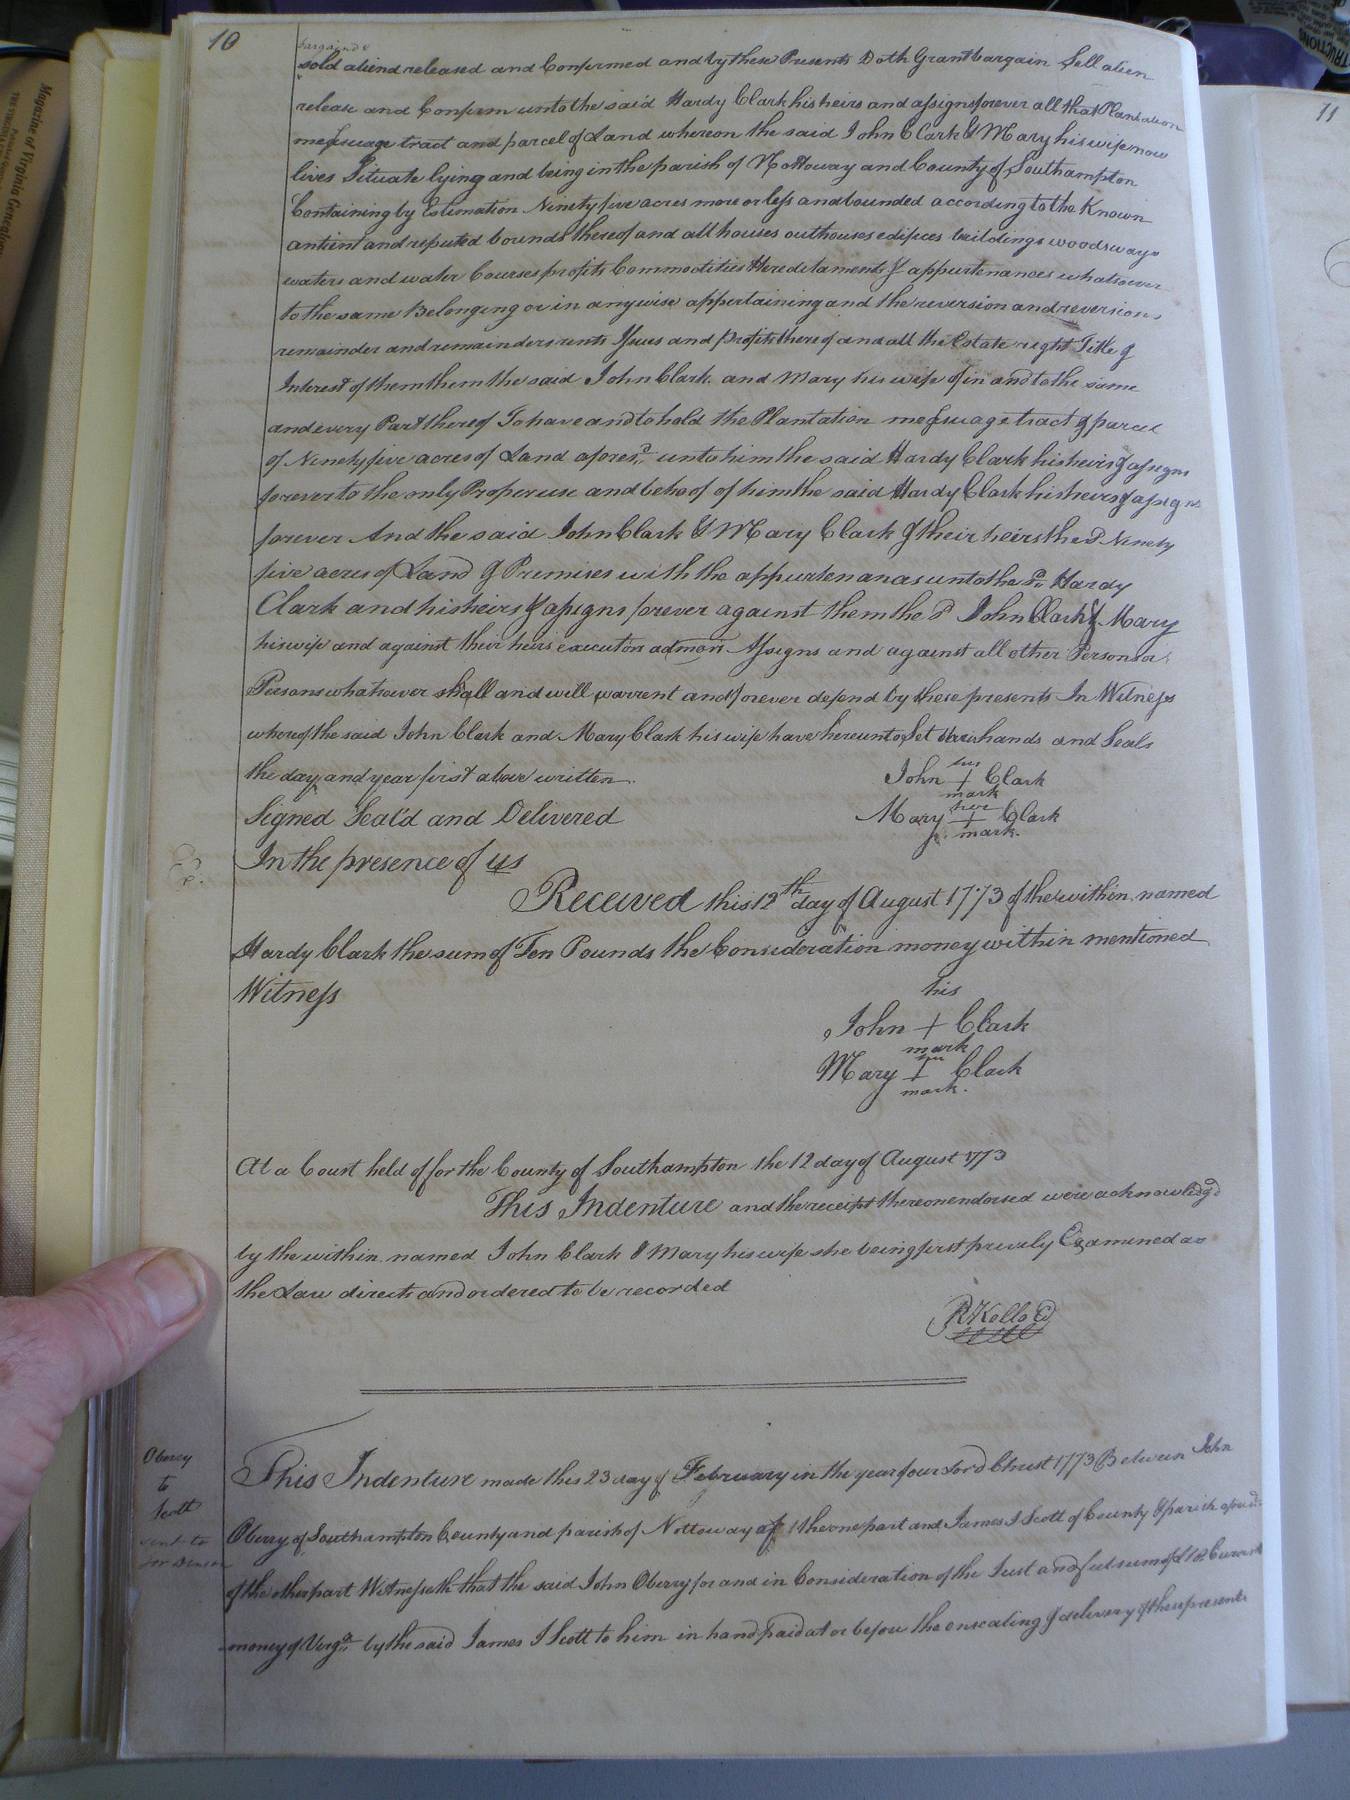 10
bargaind &
sold aliend released and Confirmed and by these Presents Doth Grant bargain Sell alien
release and Confirm unto the said Hardy Clark his heirs and assigns forever all that Plantation
messuage tract and parcel of Land whereon the said John Clark & Mary his wife now
lives Situate lying and being in the parish of Nottoway and County of Southampton
Containing by Estimation Ninety five acres more or less and bounded according to the Known
antient and reputed bounds thereof and all houses outhouses edifices buildings woods ways
waters and water Courses profits Commodities Hereditaments & appurtenances whatsoever
to the same Belonging or in any wise appertaining and the reversion and reversions
remainder and remainders rents Issues and Profits thereof and all the Estate right Title &
Interest of them them the said John Clark and Mary his wife of in and to the same
and every Part thereof To have and to hold the Plantation messuage tract & parcel
of Ninety five acres of Land aforesd. unto him the said Hardy Clark his heirs & assigns
forever to the only Proper use and behoof of him the said Hardy Clark his heirs & assigns
forever And the said John Clark & Mary Clark & their heirs the sd Ninety
five acres of Land & Premises with the appurtenanas unto the sd. Hardy
Clark and his heirs & assigns forever against them the sd John Clark & Mary
his wife and against their heirs executors admors Assigns and against all other Person or
Persons whatsoever shall and will warrent and forever defend by these presents In Witness
whereof the said John Clark and Mary Clark his wife have hereunto Set their hands and Seals
the day and year first above written
his
John + Clark
mark
Signed Seal'd and Delivered
her
Mary + Clark
mark.
In the presence of us
Received this 12th day of August 1773 of the within named
Hardy Clark the sum of Ten Pounds the Consideration money within mentioned
Witness
his
John + Clark
mark
her
Mary + Clark
mark.
At a Court held of for the County of Southampton the 12 day of August 1773
This Indenture and the receipt thereon endorsed were acknowledgd
by the within named John Clark & Mary his wife she being first privily Examined as
the Law directs and ordered to be recorded
R Kello
Oberry
to
Scott
sent to
This Indenture made this 23 day of February in the year four Lord Christ 1773 Between John
Oberry of Southampton County and parish of Nottoway of the one part and James J Scott of County & parish aforesd.
of the other part Witnesseth that the said John Oberry for and in Consideration of the Just and full sum of £12 Current
money of Virga. by the said James J Scott to him in hand paid at or before the ensealing & delivery of these presents
11
Magazine of Virginia Genealogy